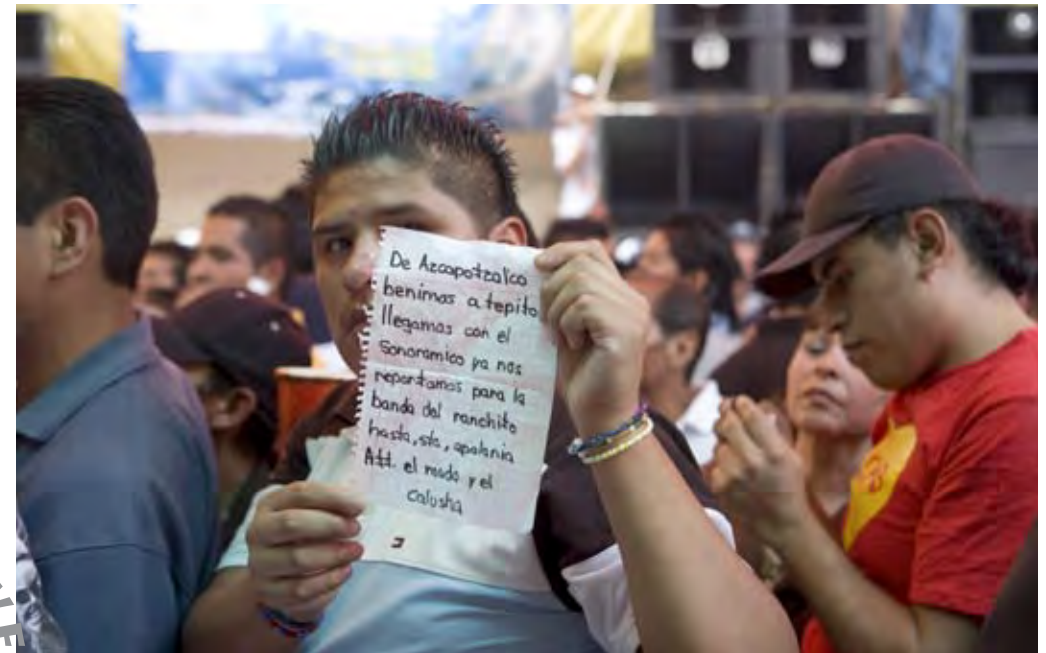 De Azcapotzalco
benimos a tepito
llegamos con el
Sonoramico ya nos
reportamos para la
banda del ranchito
hasta, sta, apolonia
Att. el moodo y el
calusha